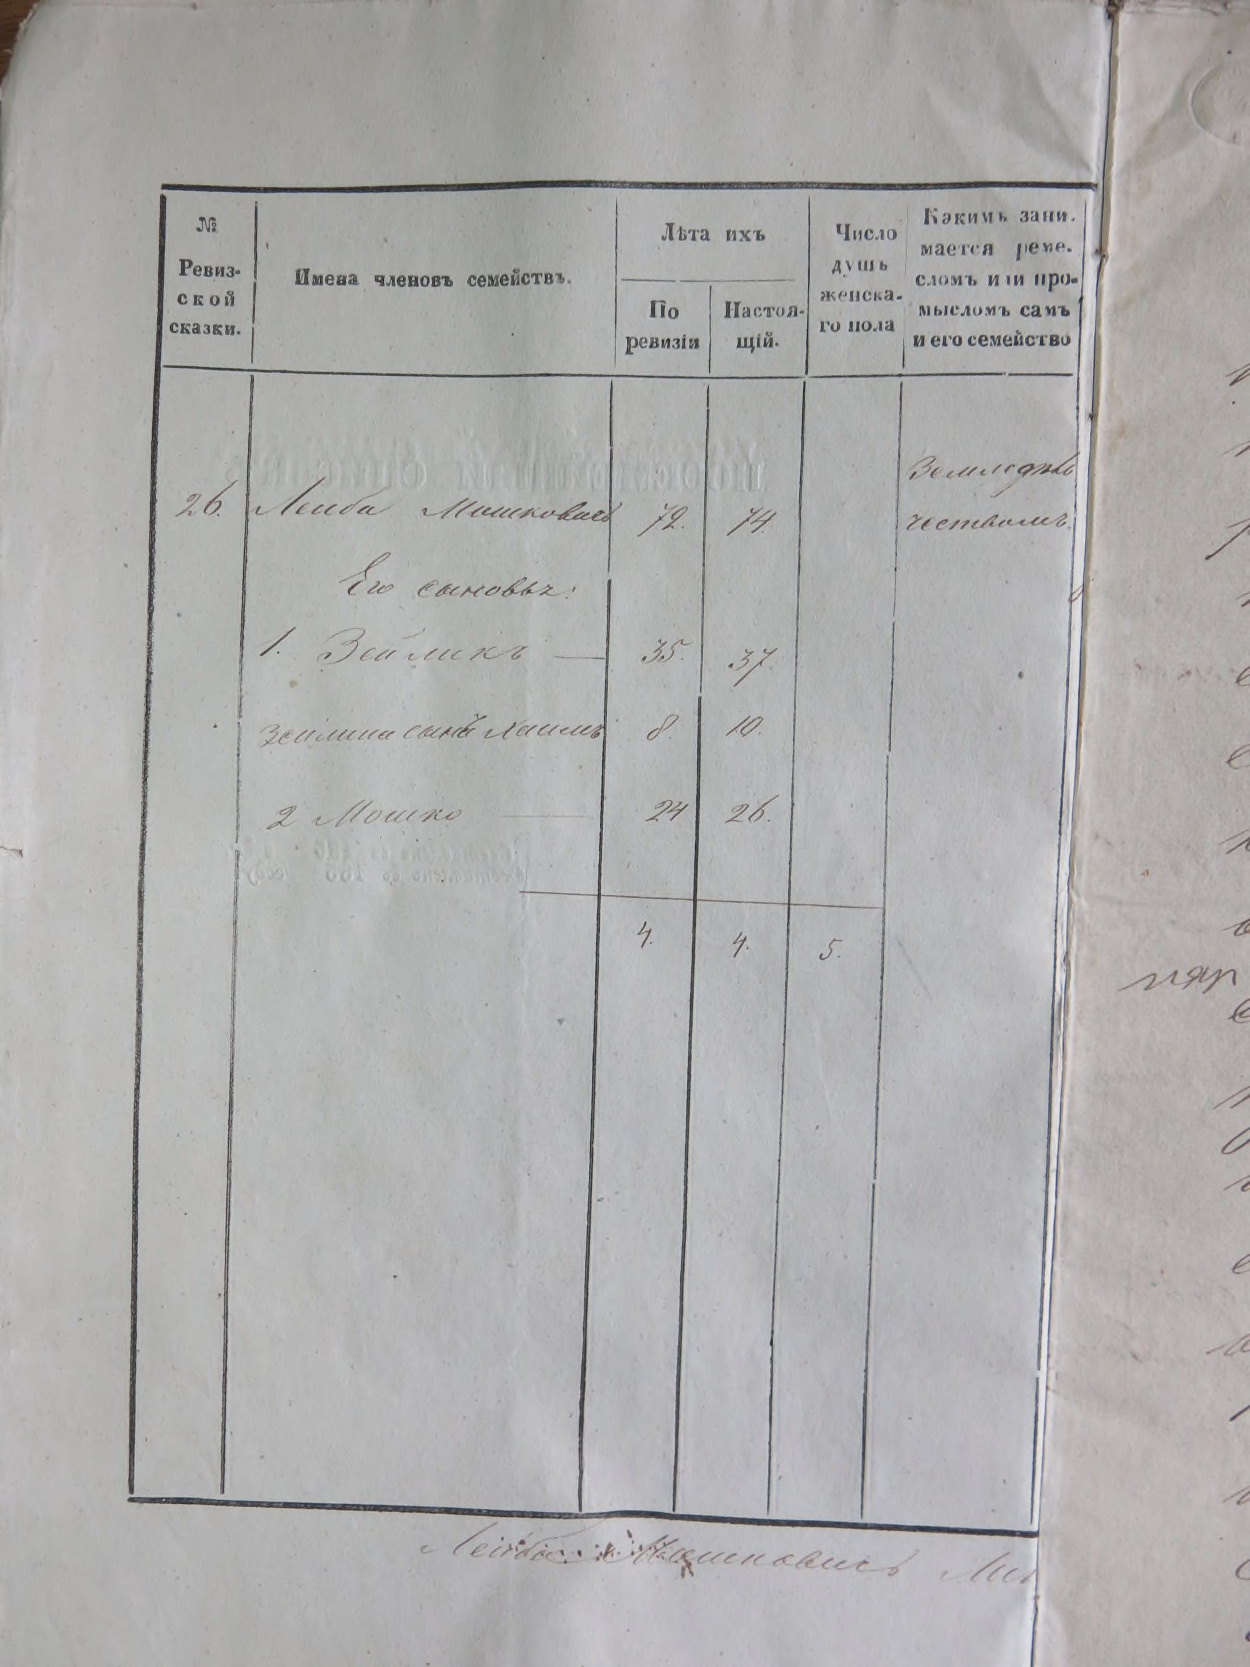 №
Ревиз-
ской
сказки.
Имена членовъ семействъ.
Лѣта ихъ
По
ревизіи
Настоя-
щій.
Число
душъ
женска-
го пола
Какимъ зани-
мается реме-
сломъ или про-
мысломъ самъ
и его семейство
Земледѣль
чествомъ.
26. Леиба Мошковичъ 72. 74.
Его сыновья:
1. Зейликъ — 35. 37.
Зеилика сынъ Хаимъ 8. 10.
2 Мошко — 24 26.
4. 4. 5.
Лейба Мошковичъ